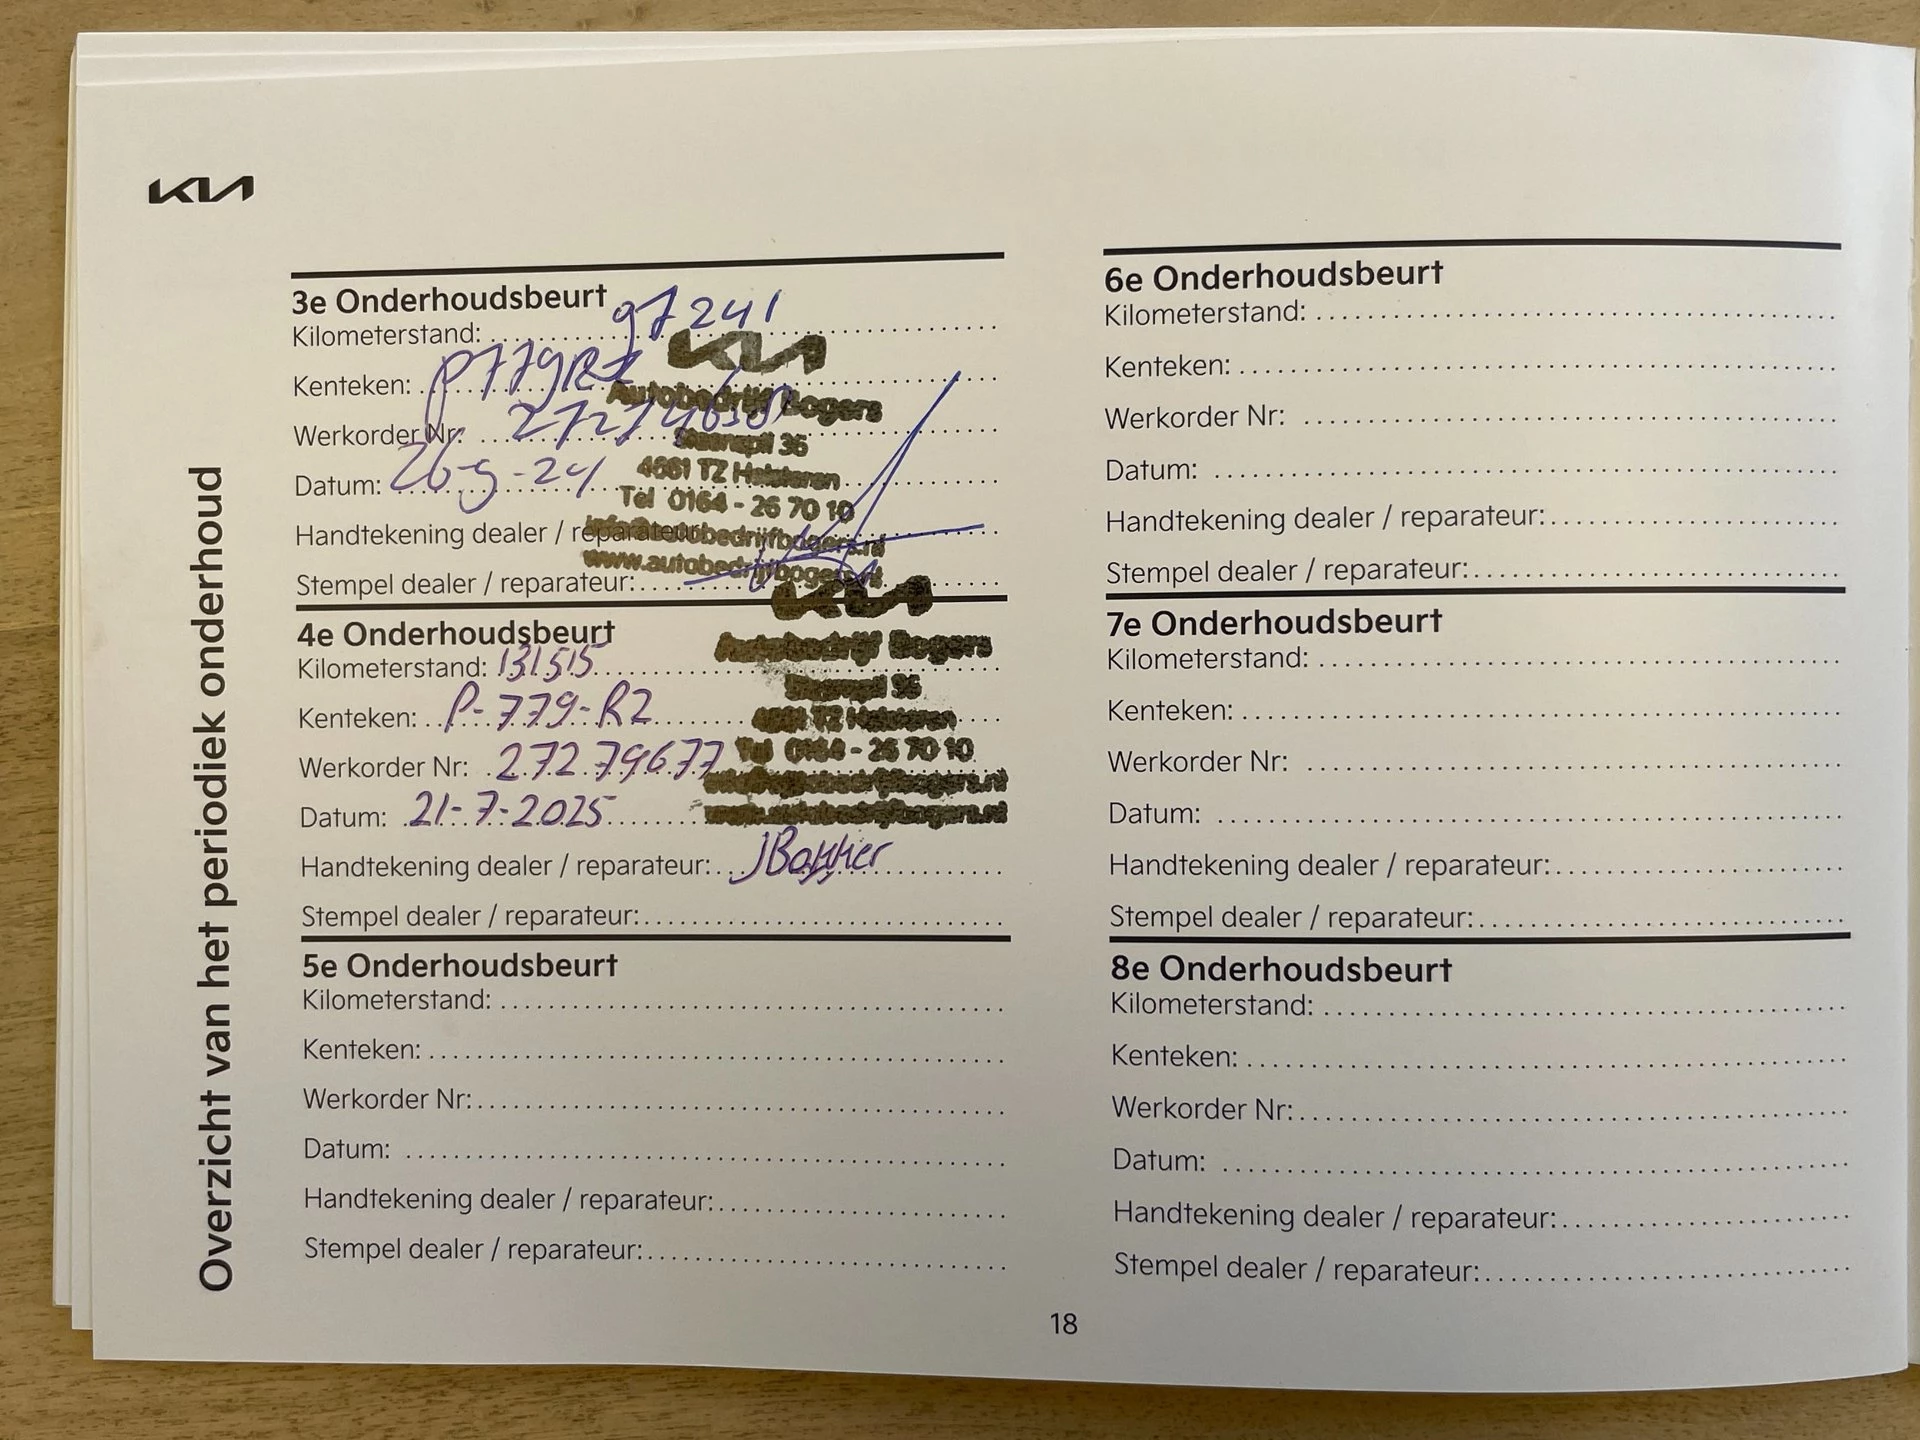 KIA
Overzicht van het periodiek onderhoud
3e Onderhoudsbeurt
Kilometerstand: 97241
Kenteken: P779RZ
Werkorder Nr:
Datum: 26-9-24
Handtekening dealer / reparateur:
Stempel dealer / reparateur:
KIA
Autobedrijf Bogers
36
4661 TZ Halsteren
Tel 0164 - 26 70 10
info@autobedrijfbogers.nl
www.autobedrijfbogers.nl
4e Onderhoudsbeurt
Kilometerstand: 131515
Kenteken: P-779-RZ
Werkorder Nr: 27279677
Datum: 21-7-2025
Handtekening dealer / reparateur: JBakker
Stempel dealer / reparateur:
KIA
Autobedrijf Bogers
36
4661 TZ Halsteren
Tel 0164 - 26 70 10
info@autobedrijfbogers.nl
www.autobedrijfbogers.nl
5e Onderhoudsbeurt
Kilometerstand:
Kenteken:
Werkorder Nr:
Datum:
Handtekening dealer / reparateur:
Stempel dealer / reparateur:
6e Onderhoudsbeurt
Kilometerstand:
Kenteken:
Werkorder Nr:
Datum:
Handtekening dealer / reparateur:
Stempel dealer / reparateur:
7e Onderhoudsbeurt
Kilometerstand:
Kenteken:
Werkorder Nr:
Datum:
Handtekening dealer / reparateur:
Stempel dealer / reparateur:
8e Onderhoudsbeurt
Kilometerstand:
Kenteken:
Werkorder Nr:
Datum:
Handtekening dealer / reparateur:
Stempel dealer / reparateur:
18